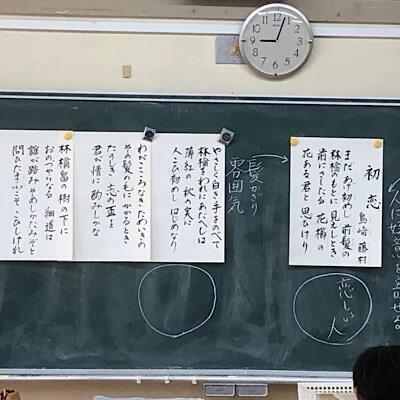 初恋
島崎藤村
まだあげ初めし前髪の
林檎のもとに見えしとき
前にさしたる花櫛の
花ある君と思ひけり
髪かざり
雰囲気
恋しい
人
やさしく白き手をのべて
林檎をわれにあたへしは
薄紅の秋の実に
人こひ初めしはじめなり
わがこゝろなきためいきの
その髪の毛にかかるとき
たのしき恋の盃を
君が情に酌みしかな
林檎畠の樹の下に
おのづからなる細道は
誰が踏みそめしかたみぞと
問ひたまふこそこひしけれ